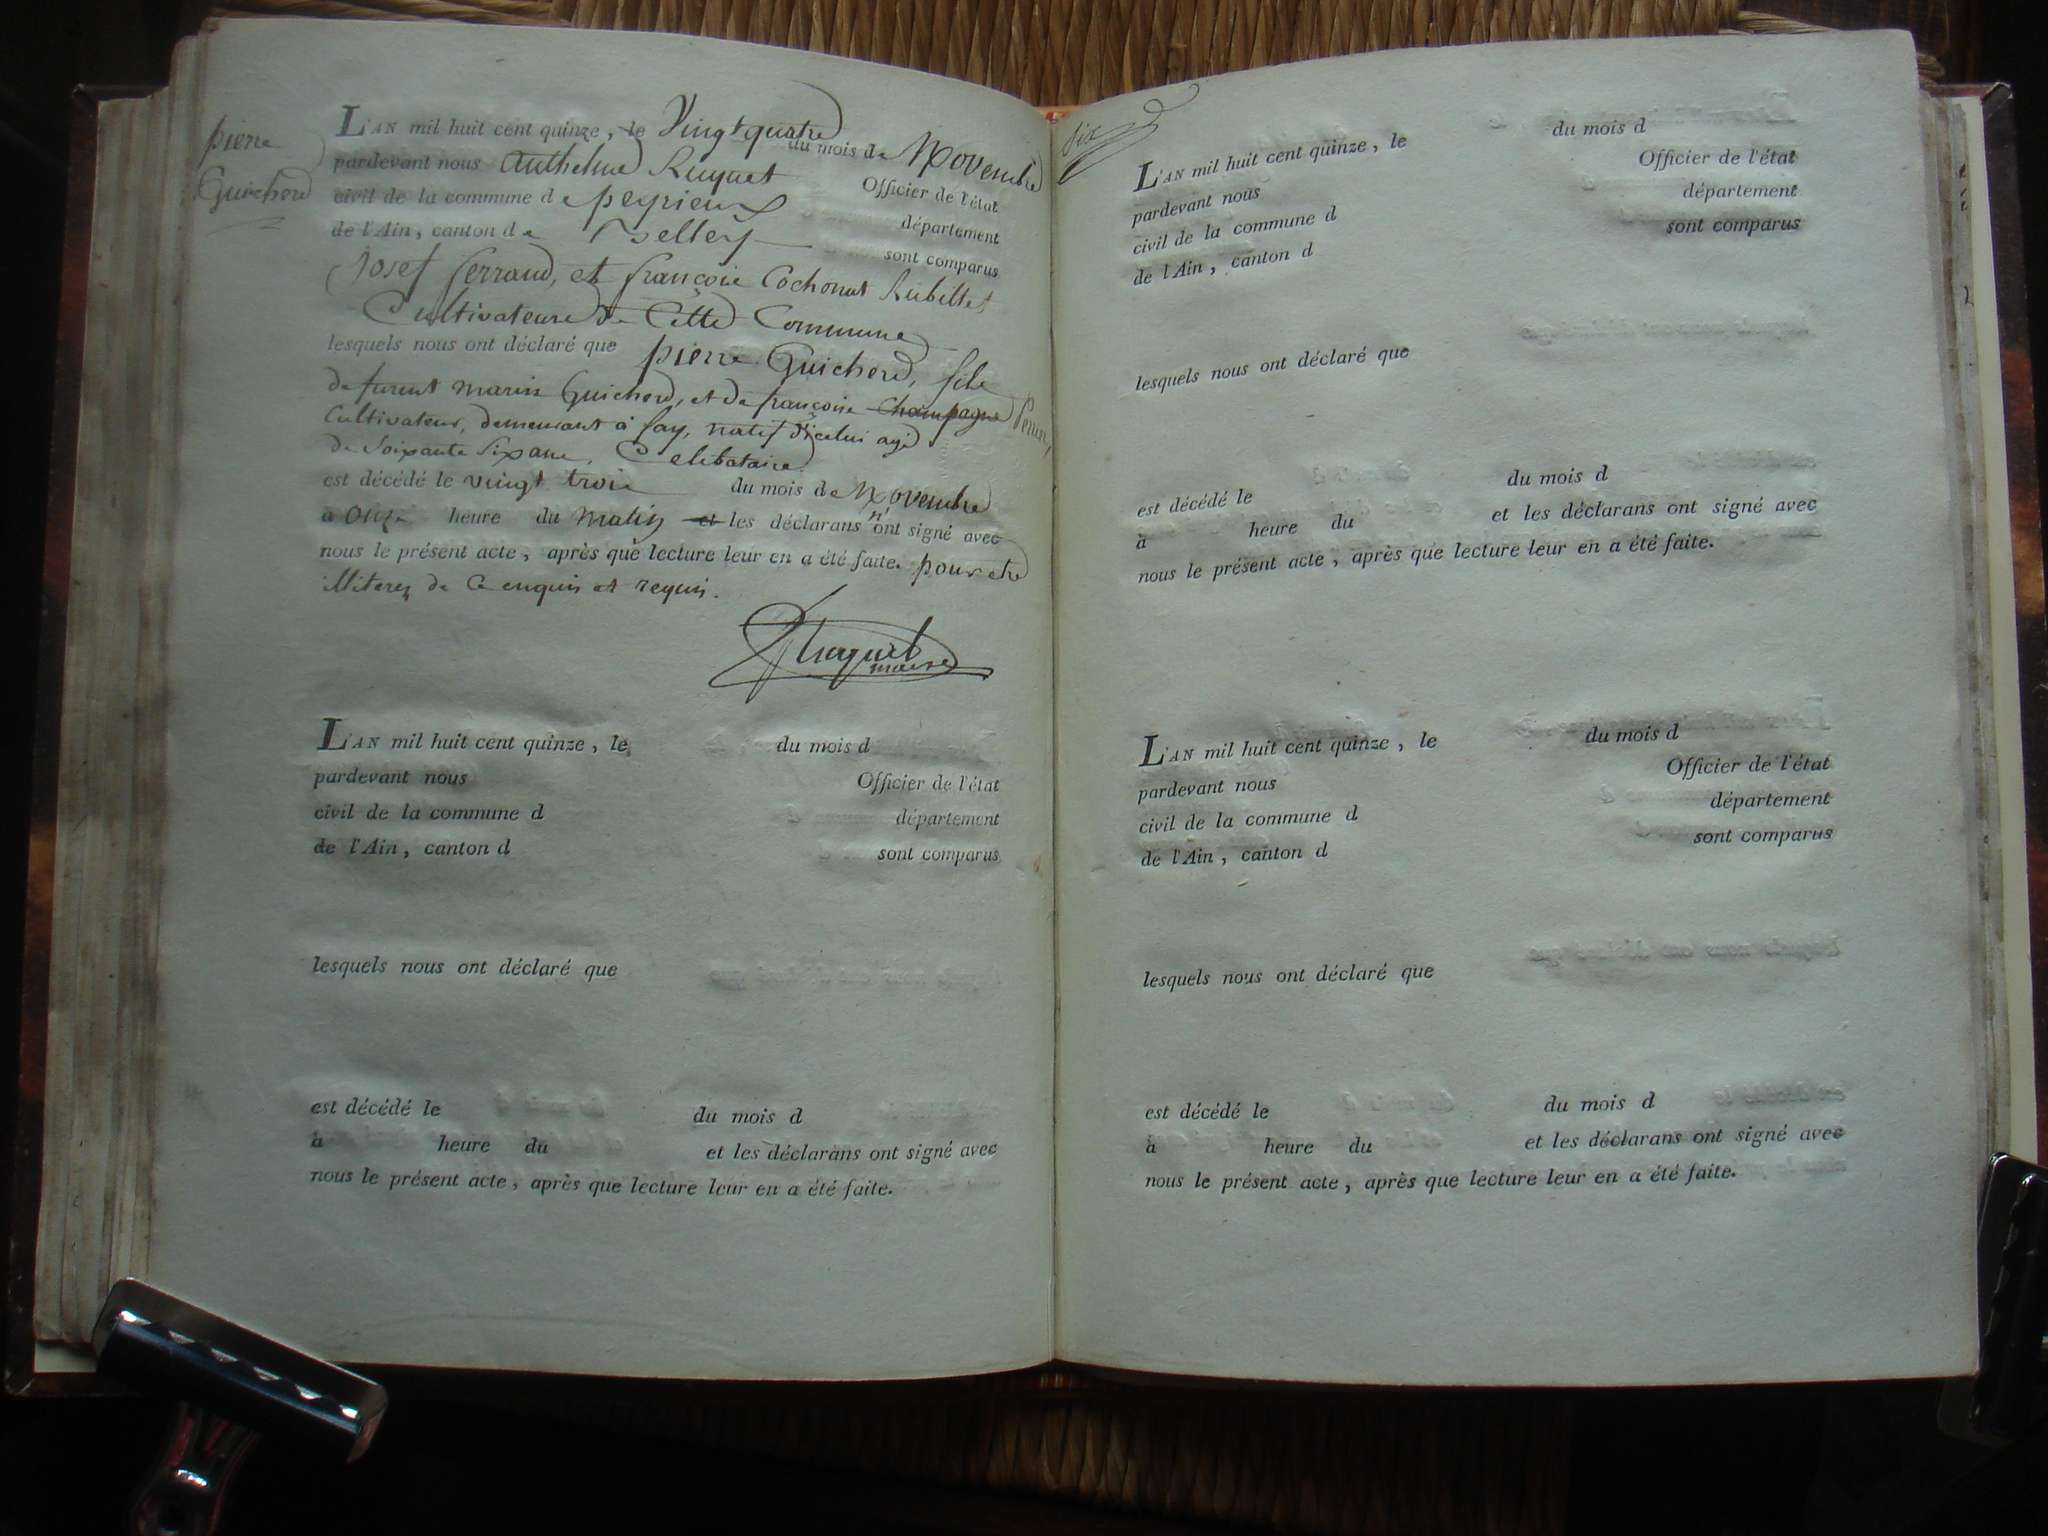 pierre
Guicherd
L'AN mil huit cent quinze, le Vingt quatre du mois de Novembre
pardevant nous Anthelme Ruguet Officier de l'état
civil de la commune de peyrieux département
de l'Ain, canton de Belley sont comparus
Josef ferrand, et françois Cochonat Rubillet
Cultivateurs de Cette Commune
lesquels nous ont déclaré que pierre Guicherd, fils
de furent marin Guicherd, et de françoise Champagne
Cultivateur, demeurant à fay, natif d'icelui agé
de Soixante Six ans, Celibataire
est décédé le vingt trois du mois de Novembre
à Onze heure du matin et les déclarans n'ont signé avec
nous le présent acte, après que lecture leur en a été faite. pour etre
illiterez de Ce enquis et requis.
Ruguet
maire
L'AN mil huit cent quinze, le du mois d
pardevant nous Officier de l'état
civil de la commune d département
de l'Ain, canton d sont comparus
lesquels nous ont déclaré que
est décédé le du mois d
à heure du et les déclarans ont signé avec
nous le présent acte, après que lecture leur en a été faite.
six
L'AN mil huit cent quinze, le du mois d
pardevant nous Officier de l'état
civil de la commune d département
de l'Ain, canton d sont comparus
lesquels nous ont déclaré que
est décédé le du mois d
à heure du et les déclarans ont signé avec
nous le présent acte, après que lecture leur en a été faite.
L'AN mil huit cent quinze, le du mois d
pardevant nous Officier de l'état
civil de la commune d département
de l'Ain, canton d sont comparus
lesquels nous ont déclaré que
est décédé le du mois d
à heure du et les déclarans ont signé avec
nous le présent acte, après que lecture leur en a été faite.